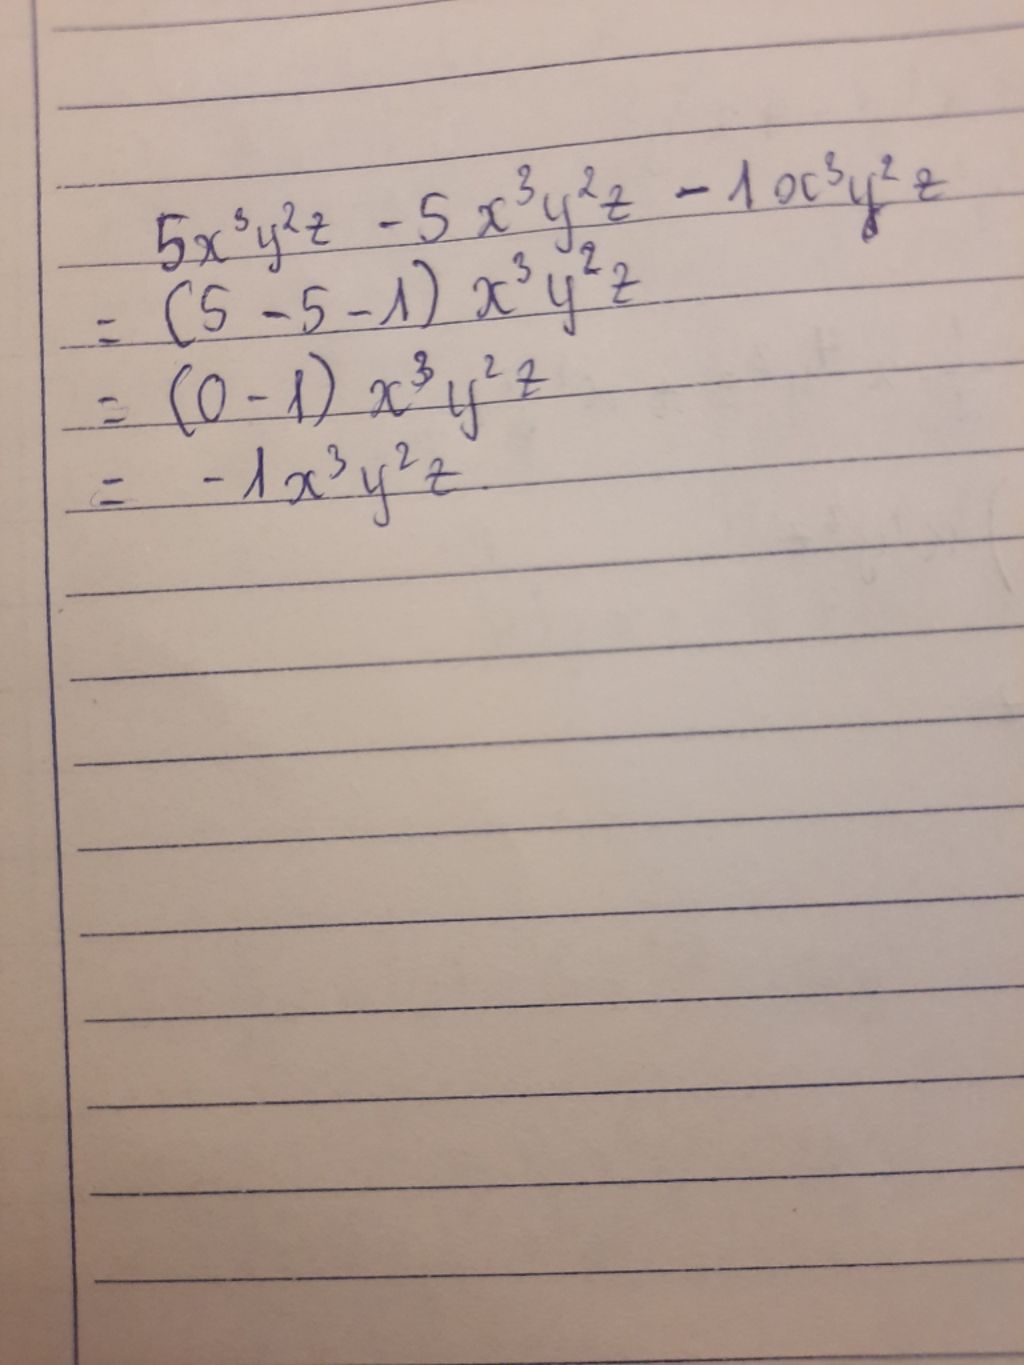 5x³y²z - 5x³y²z - 1x³y²z
= (5 - 5 - 1) x³y²z
= (0 - 1) x³y²z
= - 1x³y²z